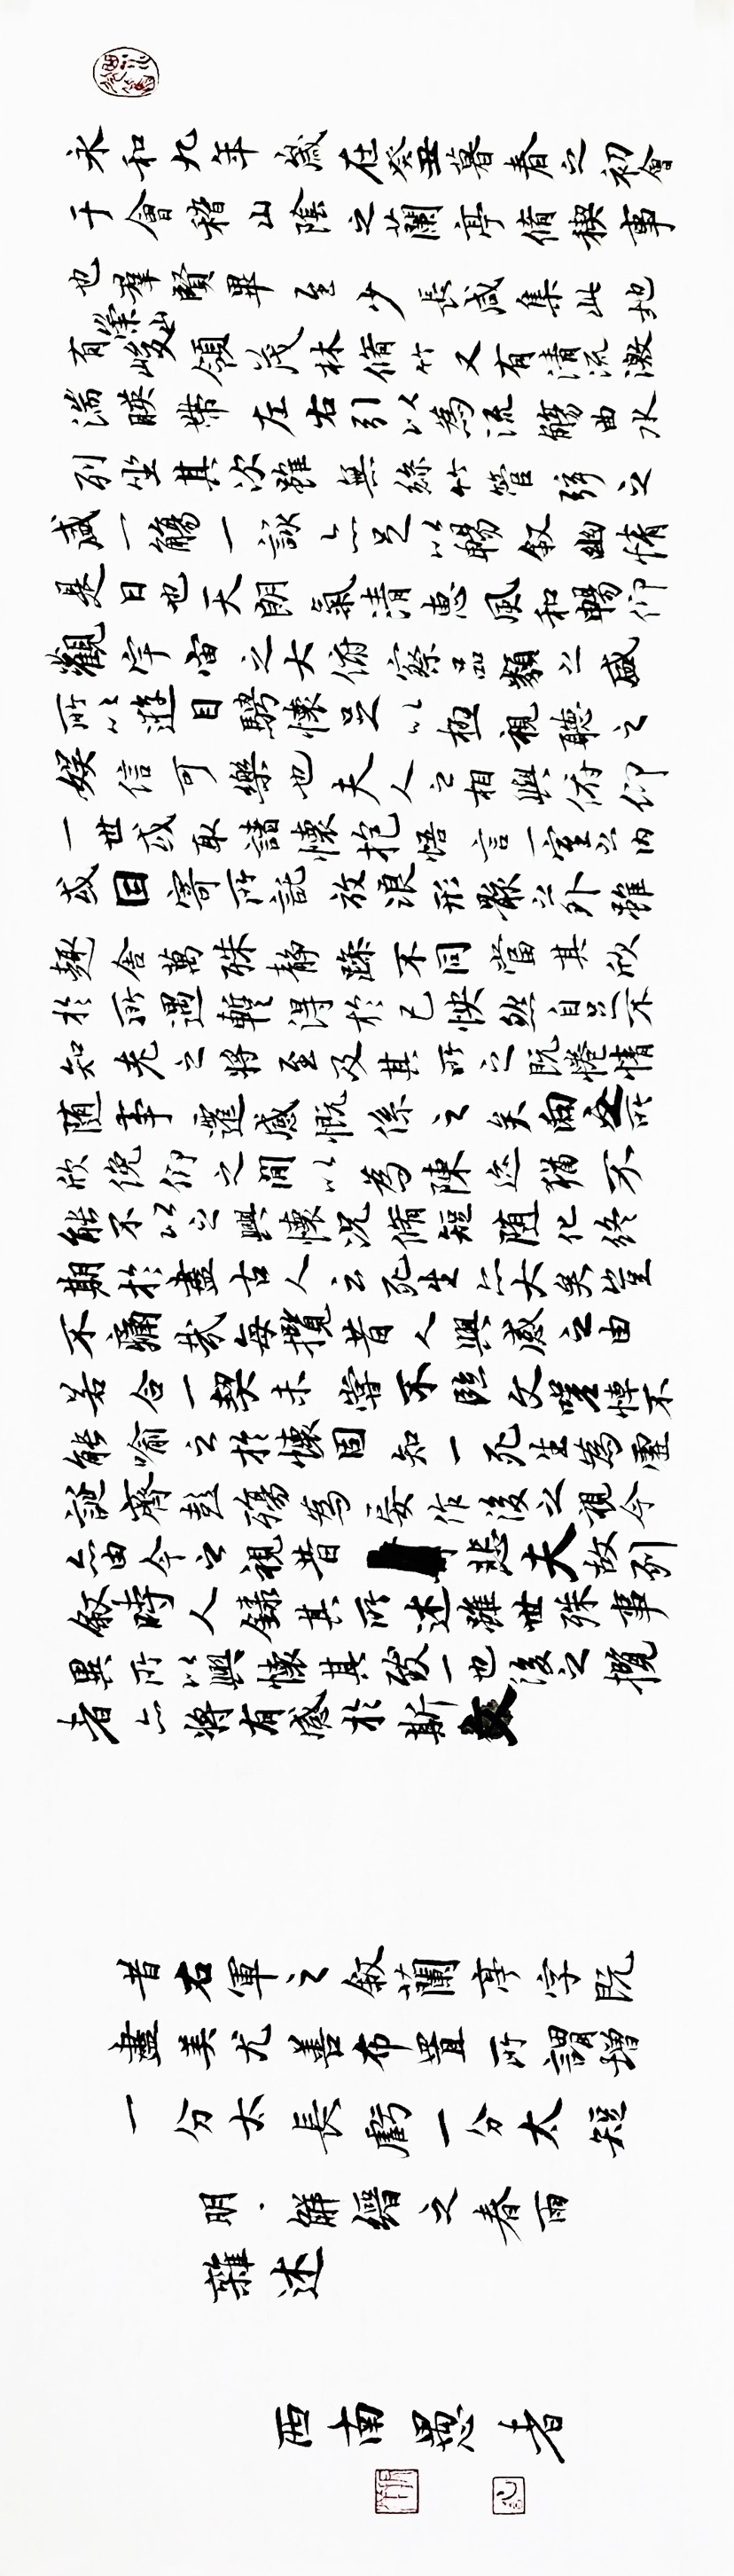 永和九年歲在癸丑暮春之初會
于會稽山陰之蘭亭脩禊事
也羣賢畢至少長咸集此地
有崇山峻領茂林脩竹又有清流激
湍暎帶左右引以為流觴曲水
列坐其次雖無絲竹管弦之
盛一觴一詠亦足以暢敘幽情
是日也天朗氣清惠風和暢仰
觀宇宙之大俯察品類之盛
所以遊目騁懷足以極視聽之
娛信可樂也夫人之相與俯仰
一世或取諸懷抱悟言一室之內
或因寄所託放浪形骸之外雖
趣舍萬殊靜躁不同當其欣
於所遇暫得於己怏然自足不
知老之將至及其所之既惓情
随事遷感慨係之矣向之所
欣俛仰之閒以為陳迹猶不
能不以之興懷況脩短随化終
期於盡古人云死生亦大矣豈
不痛哉每攬昔人興感之由
若合一契未嘗不臨文嗟悼不
能喻之於懷固知一死生為虛
誕齊彭殤為妄作後之視今
亦由今之視昔悲夫故列
敘時人錄其所述雖世殊事
異所以興懷其致一也後之攬
者亦將有感於斯文
昔右軍之敘蘭亭字既
盡美尤善布置所謂增
一分太長虧一分太短
明·解縉之春雨
雜述
西南愚者